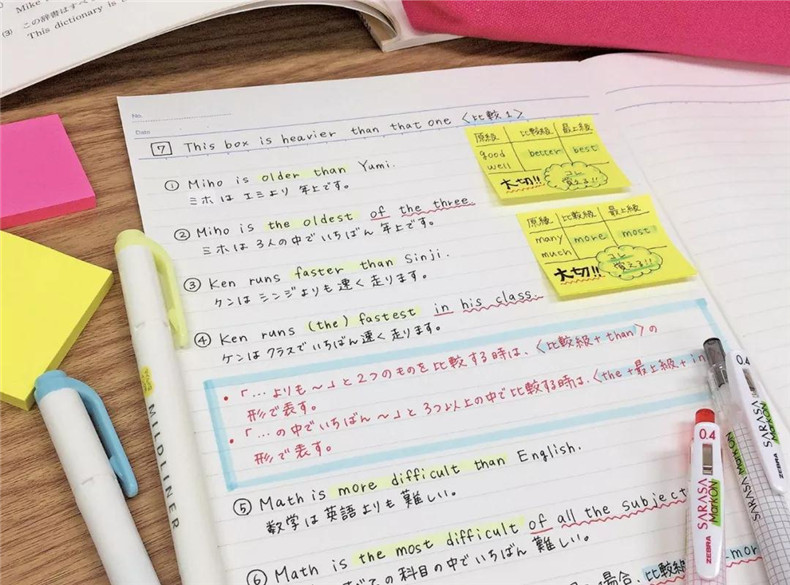 Mike
(3) この辞書はすべ
This dictionary is
No.
Date
7 This box is heavier than that one 〈比較1〉
① Miho is older than Yumi.
ミホは エミより 年上です。
② Miho is the oldest of the three
ミホは 3人の中でいちばん 年上です。
③ Ken runs faster than Sinji.
ケンは シンジよりも 速く 走ります。
④ Ken runs (the) fastest in his class.
ケンは クラスで いちばん 速く 走ります。
・「…よりも~」と2つのものを比較する時は、〈比較級+than〉の
形で表す。
・「…の中でいちばん~」と3つ以上の中で比較する時は、〈the+最上級+in
形で表す。
⑤ Math is more difficult than English.
数学は 英語よりも 難しい。
⑥ Math is the most difficult of all the subject
の科目の中でいちばん 難しい。
場合、比較級
mor
原級 比較級 最上級
good better best
well
大切!!
覚える!!
原級 比較級 最上級
many more most
much
大切!!
覚える!!
MILDLINER
0.4
SARASA
MarkON
ZEBRA
0.4
SARASA
MarkON
ZEBRA